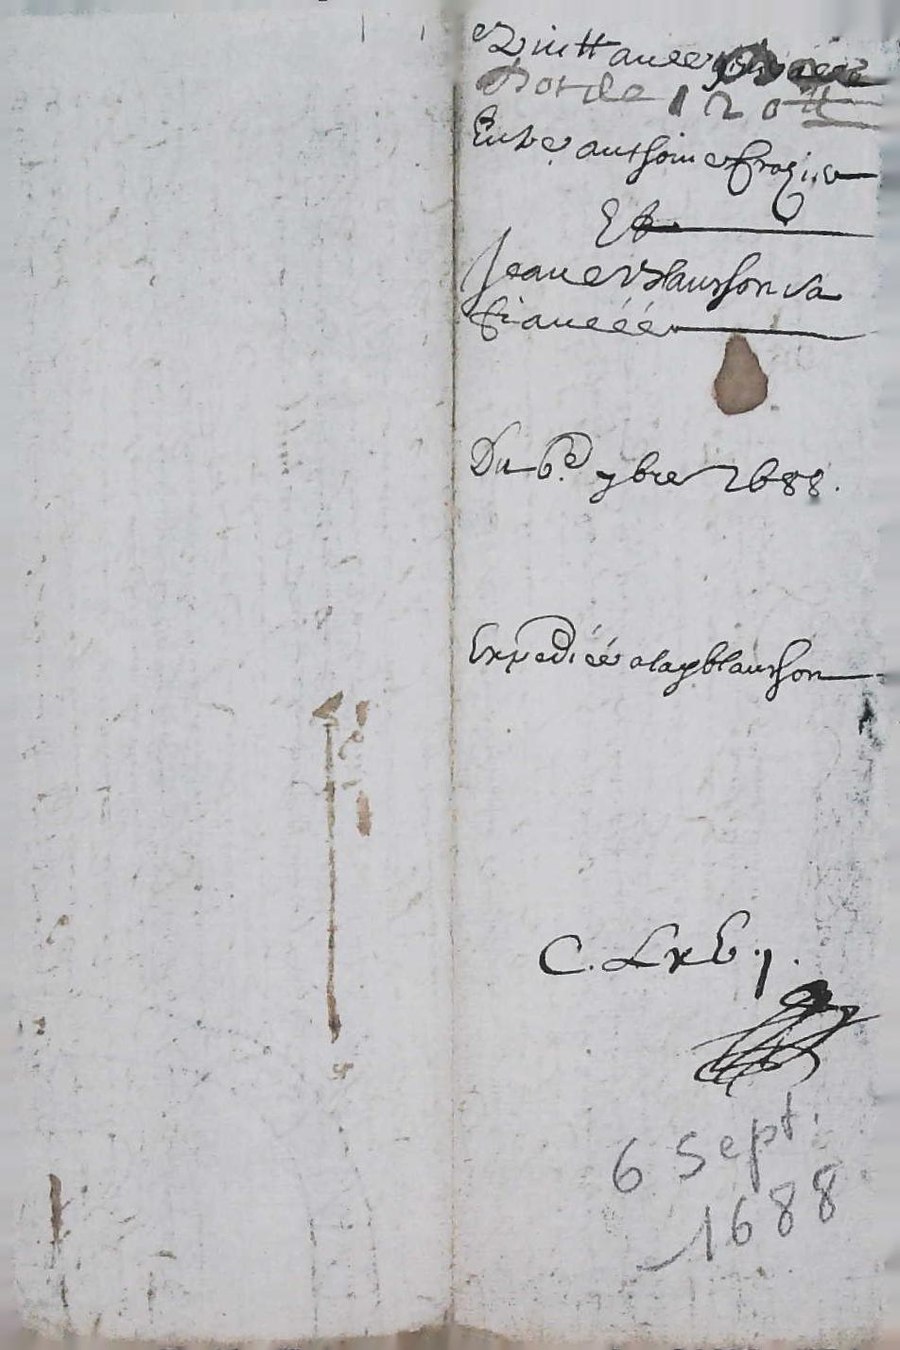 Quittance
dot de 120 ₶
Entre anthoine
Et
Jeane Blanchon sa
fiancéé
Du 6.e 7bre 1688.
Expediéé alad blanchon
C.
6 Sept.
1688